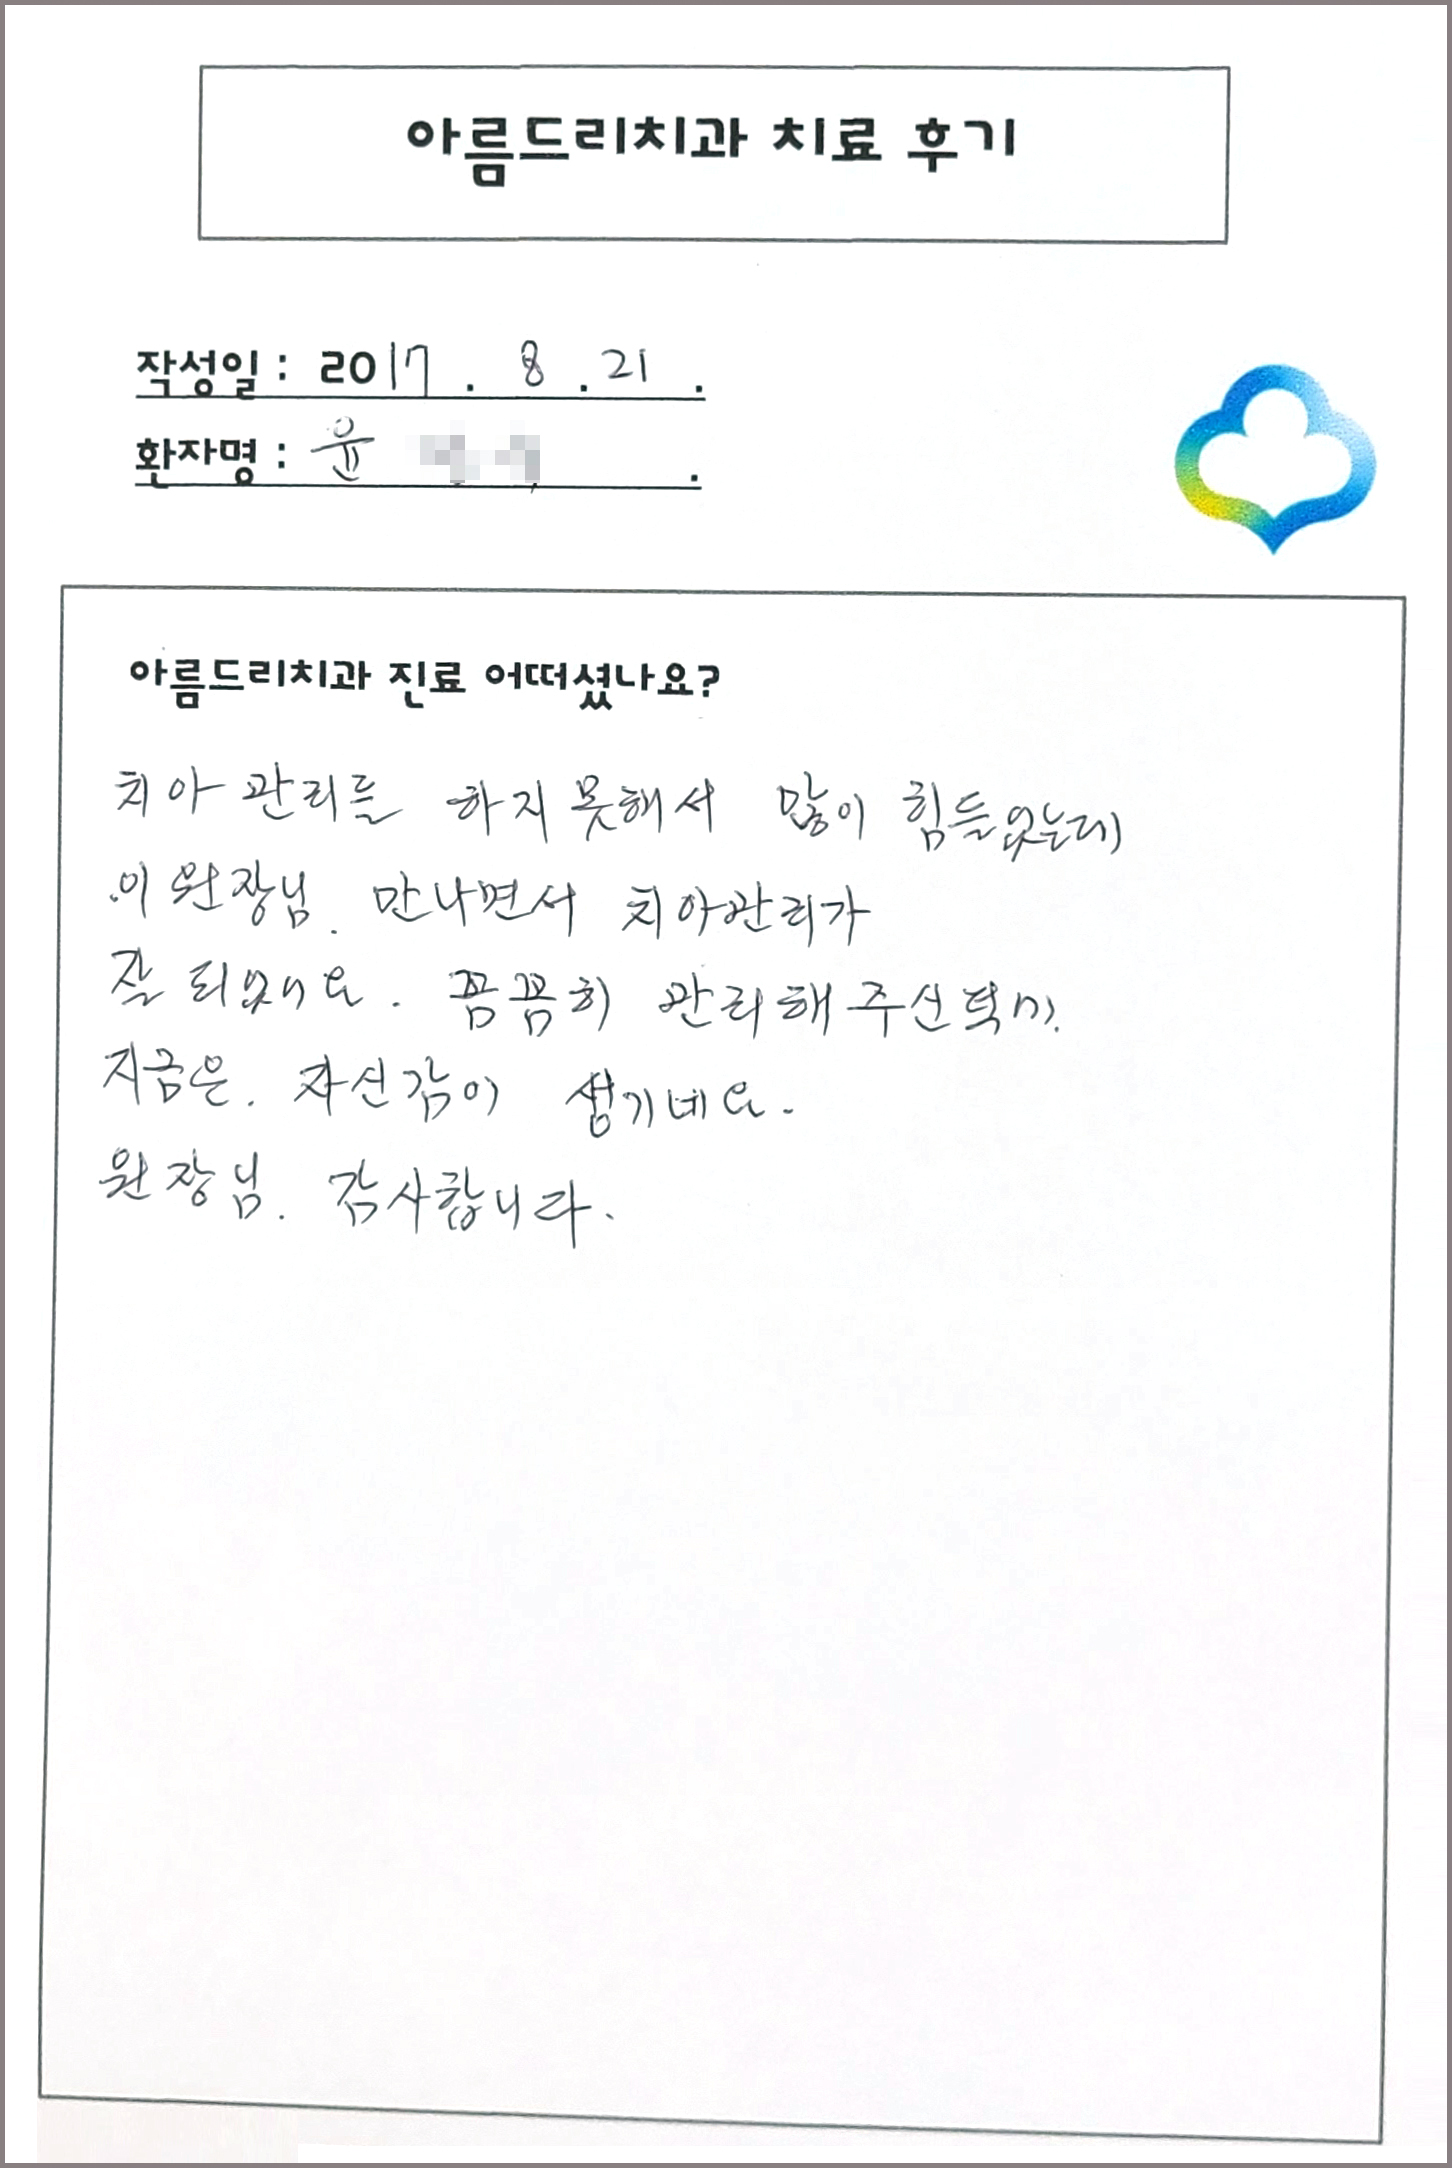 아름드리치과 치료 후기
작성일 : 2017 . 8 . 21 .
환자명 : 윤 .
아름드리치과 진료 어떠셨나요?
치아 관리를 하지 못해서 많이 힘들었는데
이 원장님. 만나면서 치아관리가
잘 되었어요. 꼼꼼히 관리해 주신덕에.
지금은. 자신감이 생기네요.
원장님. 감사합니다.